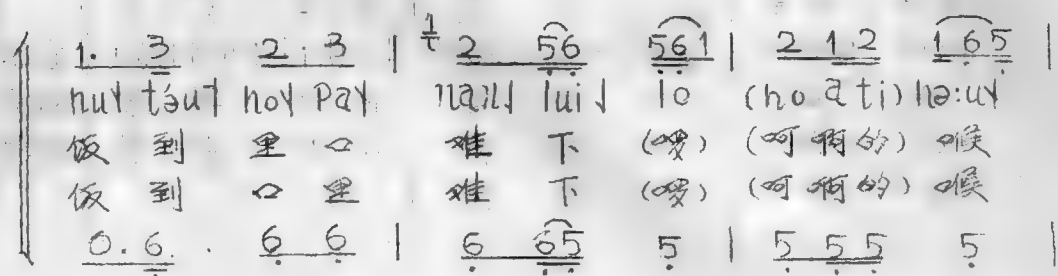 1. 3 2 3 | 1/τ 2 56 561 | 2 1 2 1 6 5 |
nuɣ tə́uꓶ hoɣ paɣ naɪn⌋ lui⌋ lo (ho a ti) hə:uɣ
饭 到 里 口 难 下 (啰) (呵啊的) 喉
饭 到 口 里 难 下 (啰) (呵啊的) 喉
0. 6. 6 6 | 6 65 5 | 5 5 5 5 |